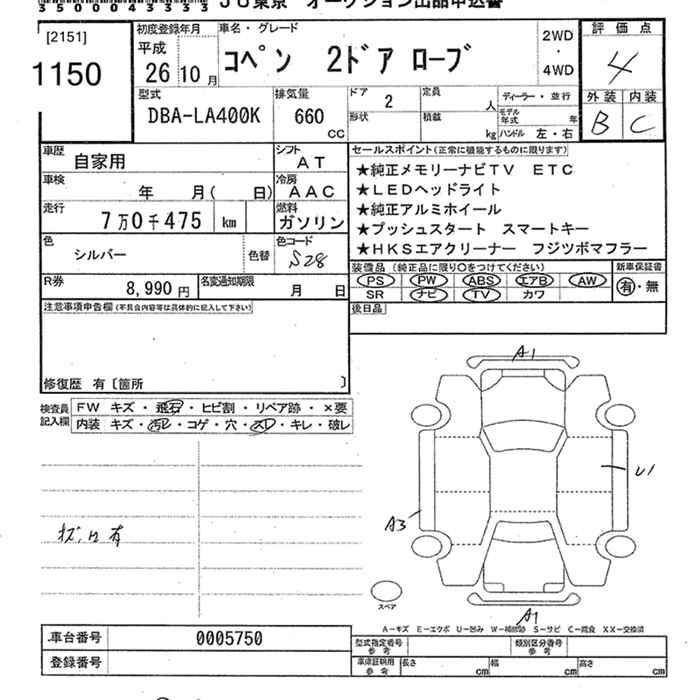 35000043933 JU東京 オークション出品申込書
[2151] 初度登録年月 車名・グレード 2WD 評価点
1150 平成 26 10月 コペン 2ドア ローブ ・ 4
4WD
型式 排気量 ドア 2 定員 人 ディーラー・並行 外装 内装
DBA-LA400K 660 CC 形状 積載 kg モデル年式 年 B C
ハンドル 左・右
車歴 自家用 シフト AT セールスポイント(正常に機能するものに限ります)
車検 年 月( 日) 冷房 AAC ★純正メモリーナビTV ETC
★LEDヘッドライト
走行 7万0千475 km 燃料 ガソリン ★純正アルミホイール
★プッシュスタート スマートキー
色 シルバー 色替 色コード S28 ★HKSエアクリーナー フジツボマフラー
R券 8,990円 名変通知期限 月 日 装備品(純正品に限り○をつけてください) 新車保証書
PS PW ABS エアB AW 有・無
SR ナビ TV カワ
注意事項申告欄(不具合内容等は具体的に記入して下さい) 後日品
修復歴 有〔箇所 〕
検査員記入欄 FW キズ・飛石・ヒビ割・リペア跡・×要
内装 キズ・汚レ・コゲ・穴・スレ・キレ・破レ
A1
U1
A3
スペア
A1
A-キズ E-エクボ U-凹み W-補修跡 S-サビ C-腐食 XX-交換済
車台番号 0005750 型式指定番号 参考 類別区分番号 参考
登録番号 車庫証明用 参考 長さ cm 幅 cm 高さ cm